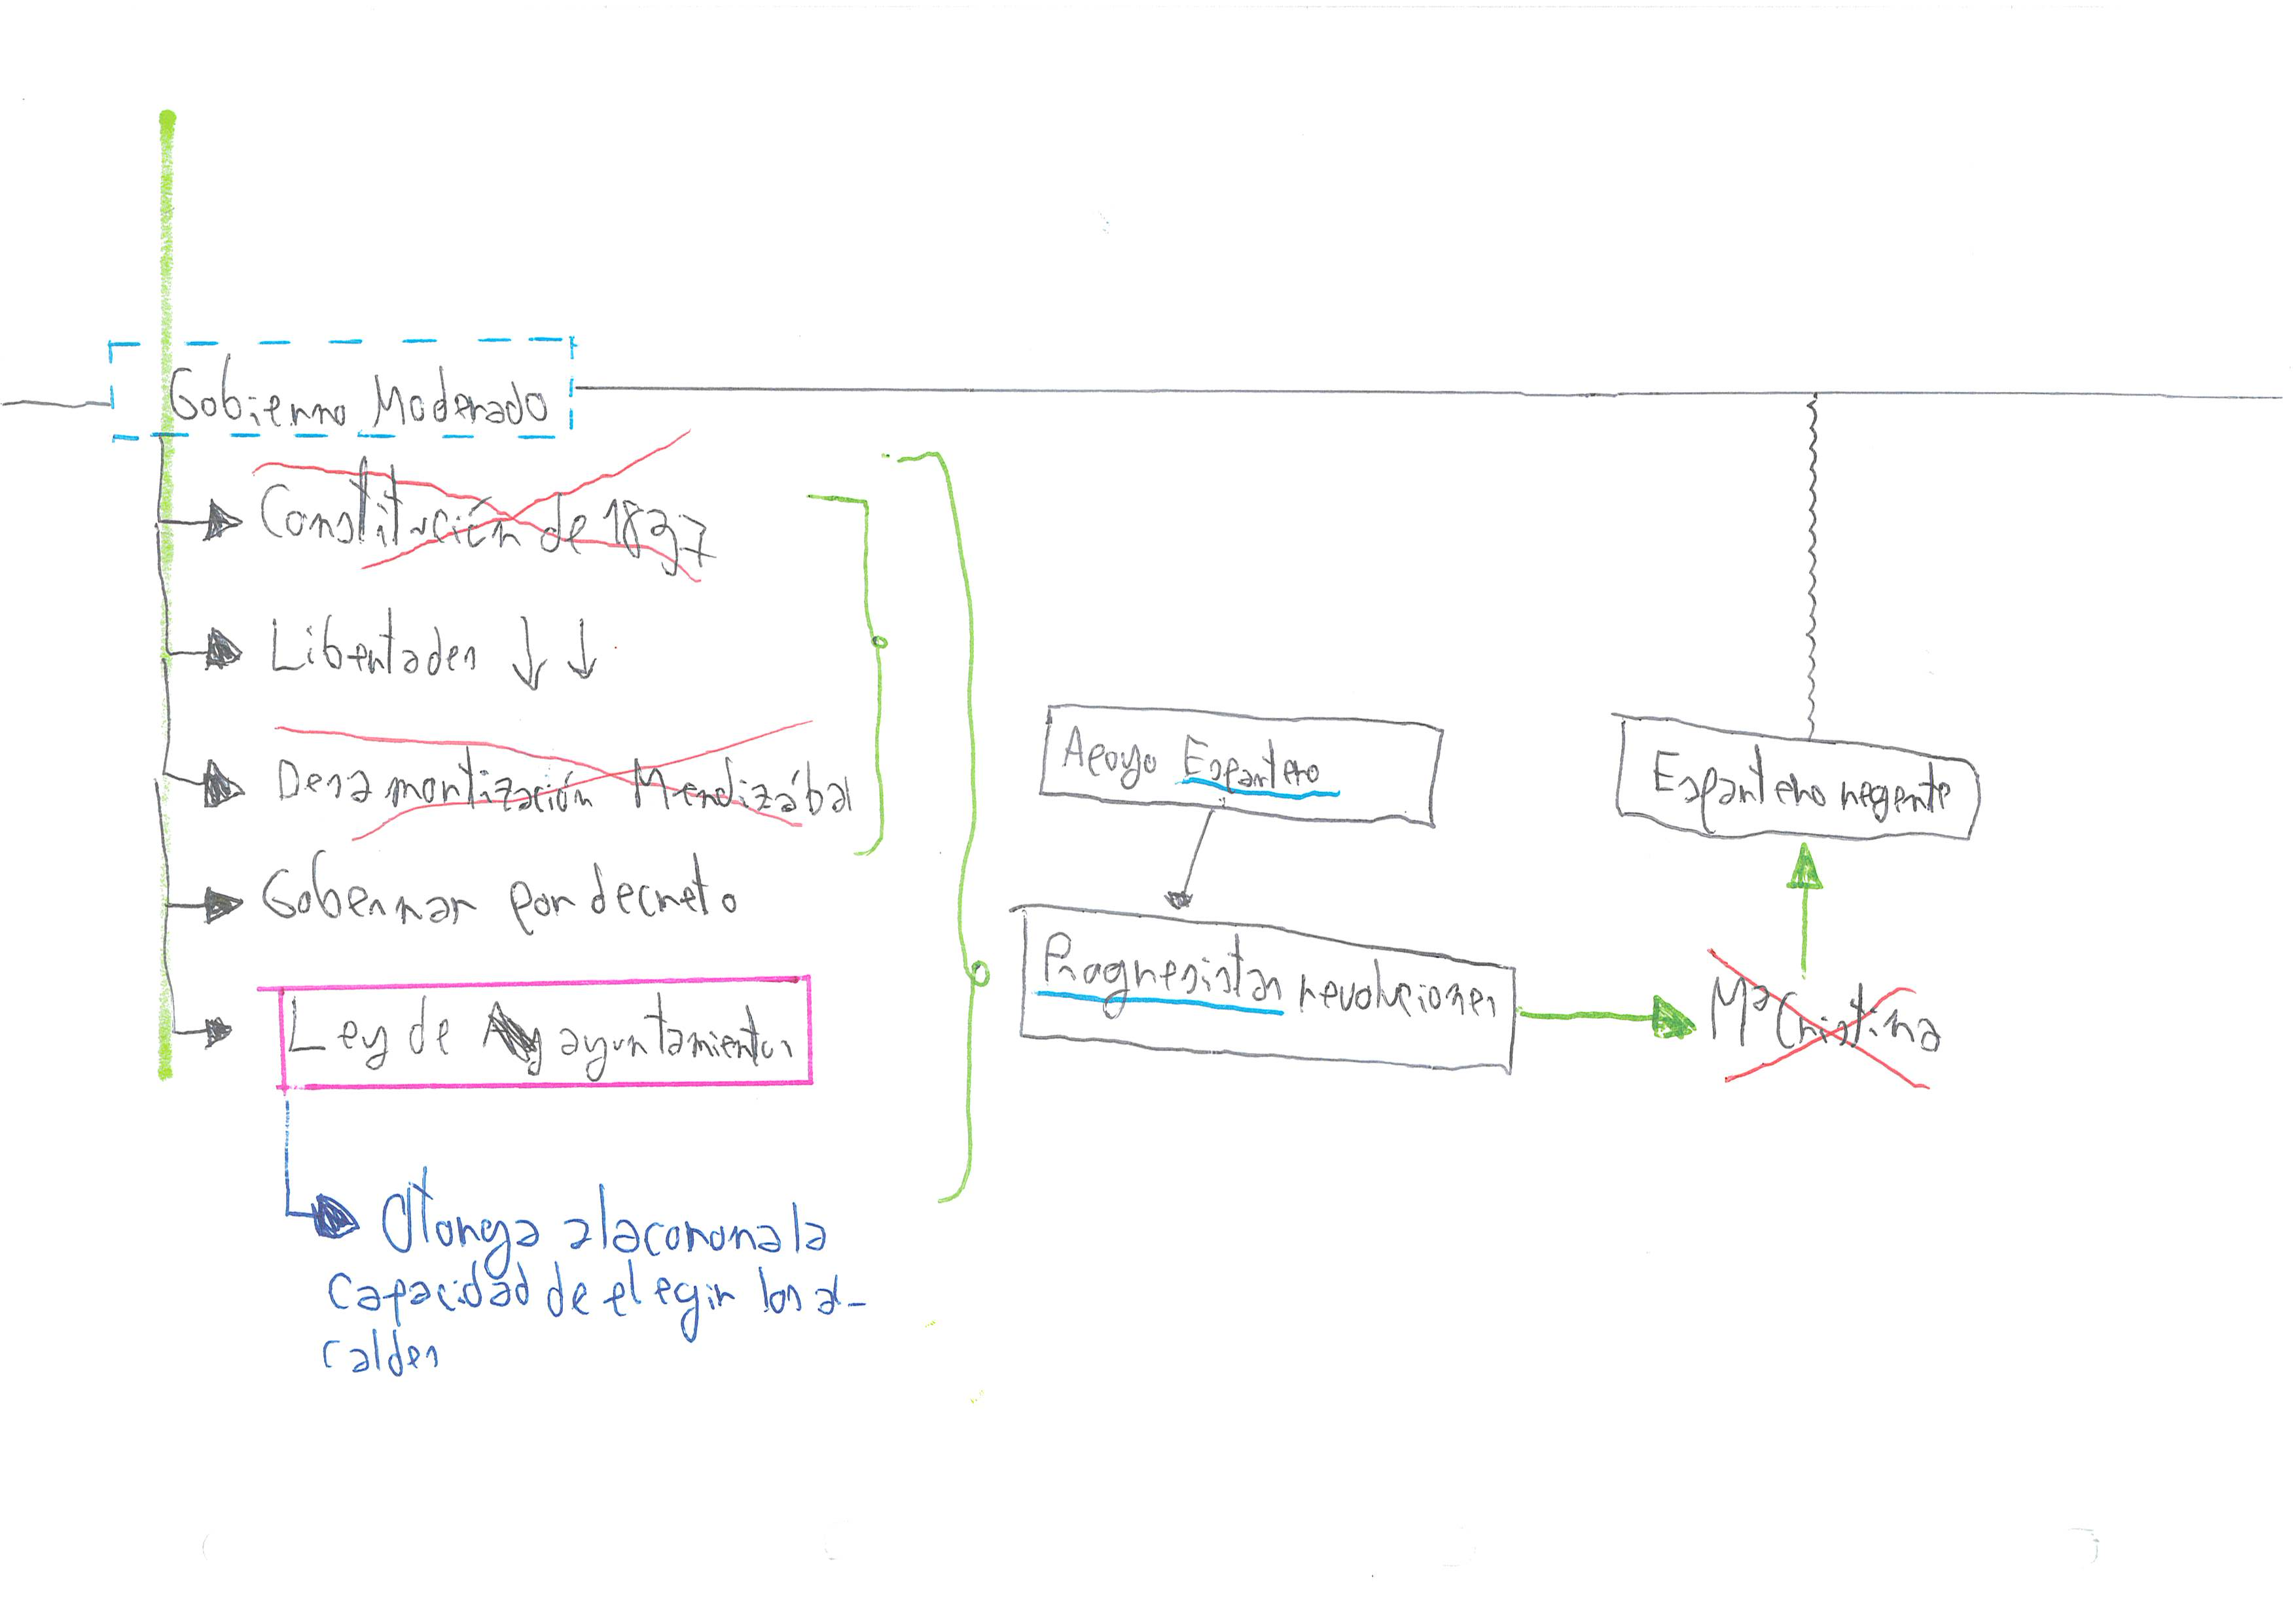 Gobierno Moderado
Constitución de 1837
Libertades ↓ ↓
Desamortización Mendizábal
Gobernar por decreto
Ley de ayuntamientos
Otorga a la corona la
capacidad de elegir los al-
caldes
Apoyo Espartero
Progresistas revoluciones
Mª Cristina
Espartero regente